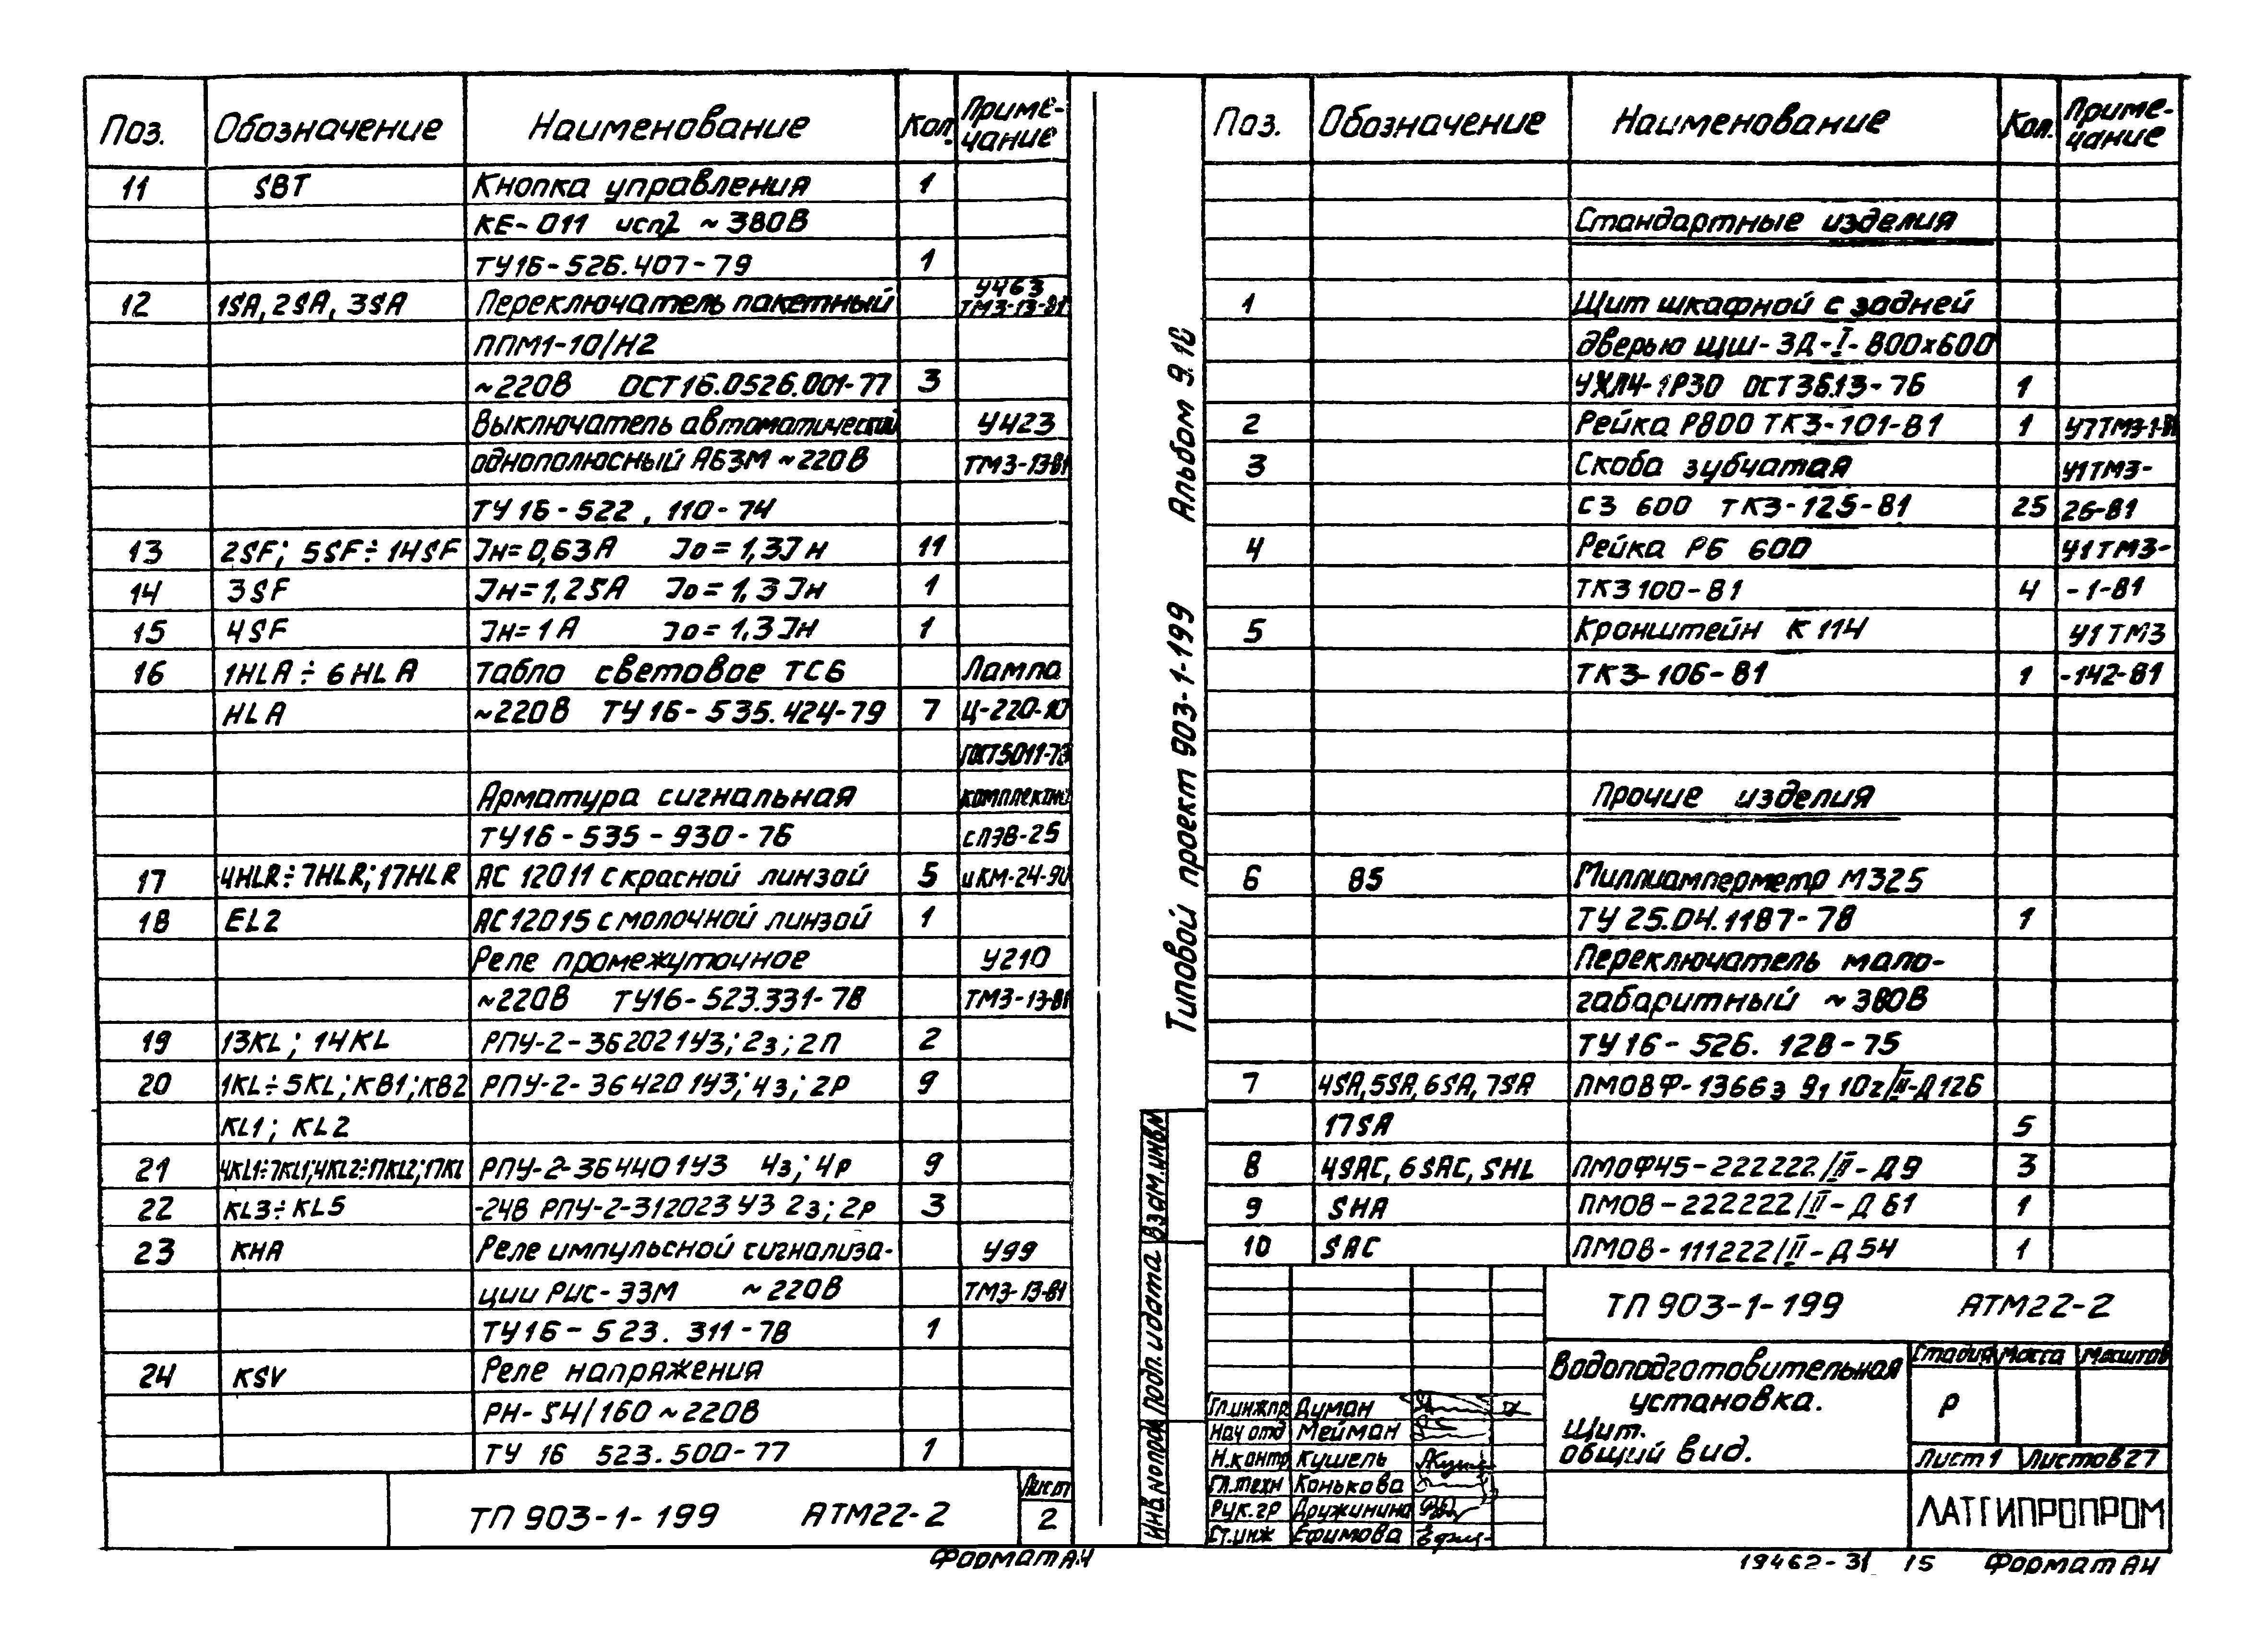 Поз. Обозначение Наименование Кол. Приме-
чание
11 SBT Кнопка управления 1
КЕ-011 исп2 ~380В
ТУ16-526.407-79 1
12 1SA, 2SA, 3SA Переключатель пакетный У463
ТМ3-13-81
ППМ1-10/Н2
~220В ОСТ16.0526.001-77 3
Выключатель автоматический У423
однополюсный А63М ~220В ТМ3-13-81
ТУ 16-522, 110-74
13 2SF; 5SF÷14SF Jн=0,63А Jо=1,3Jн 11
14 3SF Jн=1,25А Jо=1,3Jн 1
15 4SF Jн=1А Jо=1,3Jн 1
16 1HLA÷6HLA Табло световое ТСБ Лампа
HLA ~220В ТУ16-535.424-79 7 Ц-220-10
ГОСТ5011-73
Арматура сигнальная комплектно
ТУ16-535-930-76 с ПЭВ-25
17 4HLR÷7HLR; 17HLR АС 12011 с красной линзой 5 и КМ-24-90
18 EL2 АС12015 с молочной линзой 1
Реле промежуточное У210
~220В ТУ16-523.331-78 ТМ3-13-81
19 13KL; 14KL РПУ-2-362021У3; 2з; 2П 2
20 1KL÷5KL; КВ1; КВ2 РПУ-2-364201У3; 4з; 2Р 9
KL1; KL2
21 4KL1÷7KL1; 4KL2÷17KL2; 17KL РПУ-2-364401У3 4з; 4Р 9
22 KL3÷KL5 -24В РПУ-2-312023У3 2з; 2Р 3
23 КНА Реле импульсной сигнализа- У99
ции РИС-33М ~220В ТМ3-13-81
ТУ16-523.311-78 1
24 KSV Реле напряжения
РН-54/160 ~220В
ТУ 16 523.500-77 1
ТП 903-1-199 АТМ22-2 Лист
2
Формат А4
Типовой проект 903-1-199 Альбом 9.10
Поз. Обозначение Наименование Кол. Приме-
чание
Стандартные изделия
1 Щит шкафной с задней
дверью ЩШ-3Д-I-800х600
УХЛ4-1Р30 ОСТ36.13-76 1
2 Рейка Р800 ТК3-101-81 1 У7ТМ3-1-81
3 Скоба зубчатая У1ТМ3-
С3 600 ТК3-125-81 25 26-81
4 Рейка РБ 600 У1ТМ3-
ТК3100-81 4 -1-81
5 Кронштейн К 114 У1ТМ3
ТК3-106-81 1 -142-81
Прочие изделия
6 85 Миллиамперметр М325
ТУ 25.04.1187-78 1
Переключатель мало-
габаритный ~380В
ТУ16-526. 128-75
7 4SA, 5SA, 6SA, 7SA ПМОВФ-1366з 91 10г/II-Д126
17SA 5
8 4SAC, 6SAC, SHL ПМОФ45-222222/II-Д9 3
9 SHA ПМОВ-222222/II-Д61 1
10 SAC ПМОВ-111222/II-Д54 1
Взам.инв№
Подп. и дата
Инв.№подл
ТП 903-1-199 АТМ22-2
Водоподготовительная
установка.
Щит.
Общий вид.
Стадия Масса Масштаб
Р
Лист 1 Листов 27
ЛАТГИПРОПРОМ
Гл.инж.пр Думан
Нач отд Мейман
Н.контр Кушель
Гл.техн Конькова
Рук.гр Дружинина
Ст.инж Ефимова
19462-31 15 Формат А4